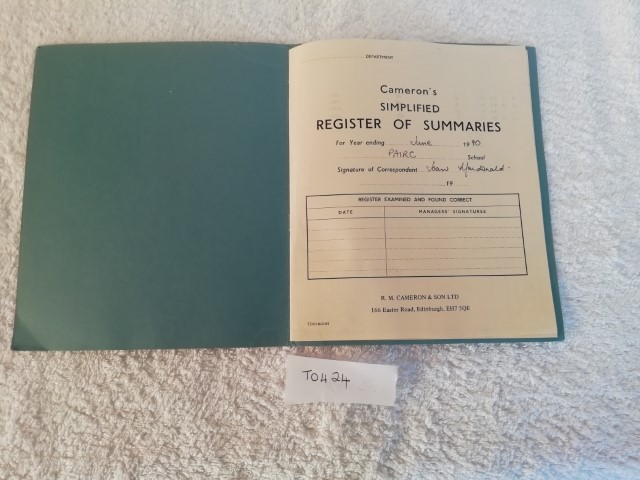 DEPARTMENT
Cameron's
SIMPLIFIED
REGISTER OF SUMMARIES
For Year ending June 1990
PAIRC School
Signature of Correspondent Joan Macdonald
19
REGISTER EXAMINED AND FOUND CORRECT
DATE MANAGERS' SIGNATURES
R. M. CAMERON & SON LTD
166 Easter Road, Edinburgh, EH7 5QE
T0424